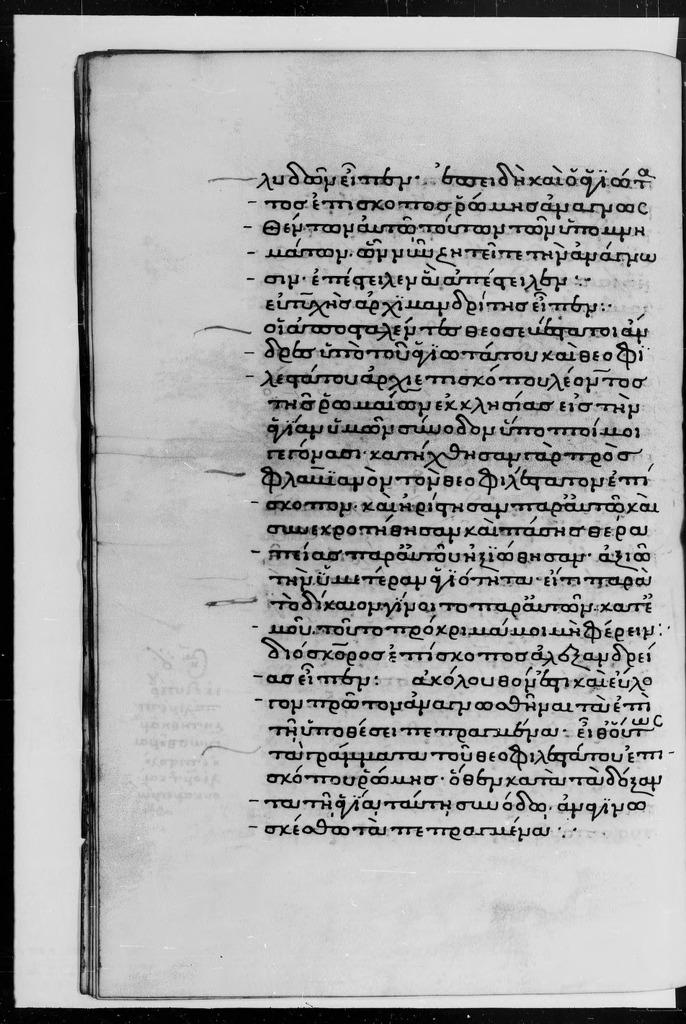 λυδῶν εἶπεν· ἐπειδὴ καὶ ὁ ἁγιώτα
τος ἐπίσκοπος ῥώμης ἀναγνωσ
θέντων αὐτῶ τούτων τῶν ὑπομνη
μάτων. ὧν νῦν ζητεῖτε τὴν ἀνάγνω
σιν· ἐπέστειλεν ἃ ἀπέστειλεν:
εὐτυχὴς ἀρχιμανδρίτης εἶπεν:
οἱ ἀποσταλέντες θεοσεβέστατοι ἄν
δρες ὑπὸ τοῦ ἁγιωτάτου καὶ θεοφι
λεστάτου ἀρχιεπισκόπου λέοντος
τῆς ῥωμαίων ἐκκλησίας εἰς τὴν
ἁγίαν ὑμῶν σύνοδον ὕποπτοί μοι
γεγόνασι· κατήχθησαν γὰρ πρὸς
φλαυϊανὸν τὸν θεοφιλέστατον ἐπί
σκοπον· καὶ ἠρίστησαν παρ' αὐτῶ καὶ
συνεκροτήθησαν καὶ πάσης θερα
πείας παρ' αὐτοῦ ἠξιώθησαν· ἀξιῶ
τὴν ὑμετέραν ἁγιότητα· εἴ τι παρὰ
τὸ δίκαιον γίνοιτο παρ' αὐτῶν κατ' ἐ
μοῦ. τοῦτο πρόκριμά μοι μὴ φέρειν:
διόσκορος ἐπίσκοπος ἀλεξανδρεί
ας εἶπεν: ἀκόλουθόν ἐστι καὶ εὔλο
γον πρῶτον ἀναγνωσθῆναι τὰ ἐπὶ
τῇ ὑποθέσει πεπραγμένα· εἶθ' οὕτως
τὰ γράμματα τοῦ θεοφιλεστάτου ἐπι
σκόπου ῥώμης· ὅθεν κατὰ τὰ δόξαν
τα τῇ ἁγίᾳ ταύτῃ συνόδω. ἀναγινω
σκέσθω τὰ πεπραγμένα: